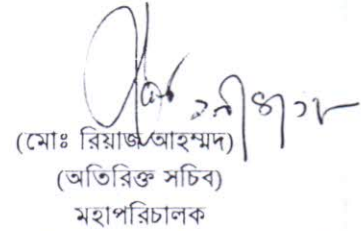 (মোঃ রিয়াজ আহম্মদ)
(অতিরিক্ত সচিব)
মহাপরিচালক